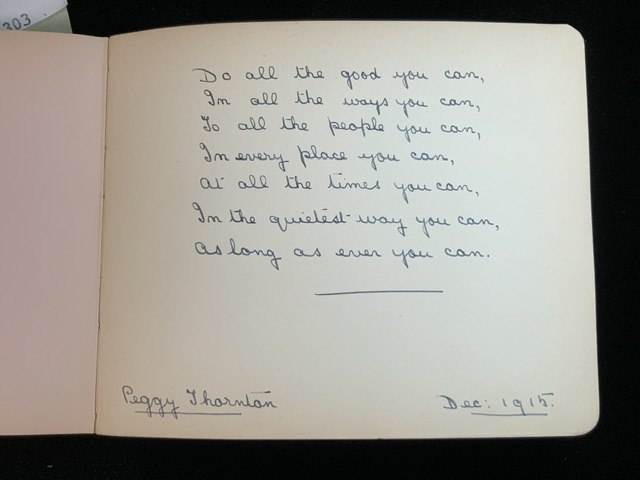 303
Do all the good you can,
In all the ways you can,
To all the people you can,
In every place you can,
At all the times you can,
In the quietest way you can,
As long as ever you can.
Peggy Thornton
Dec: 1915.